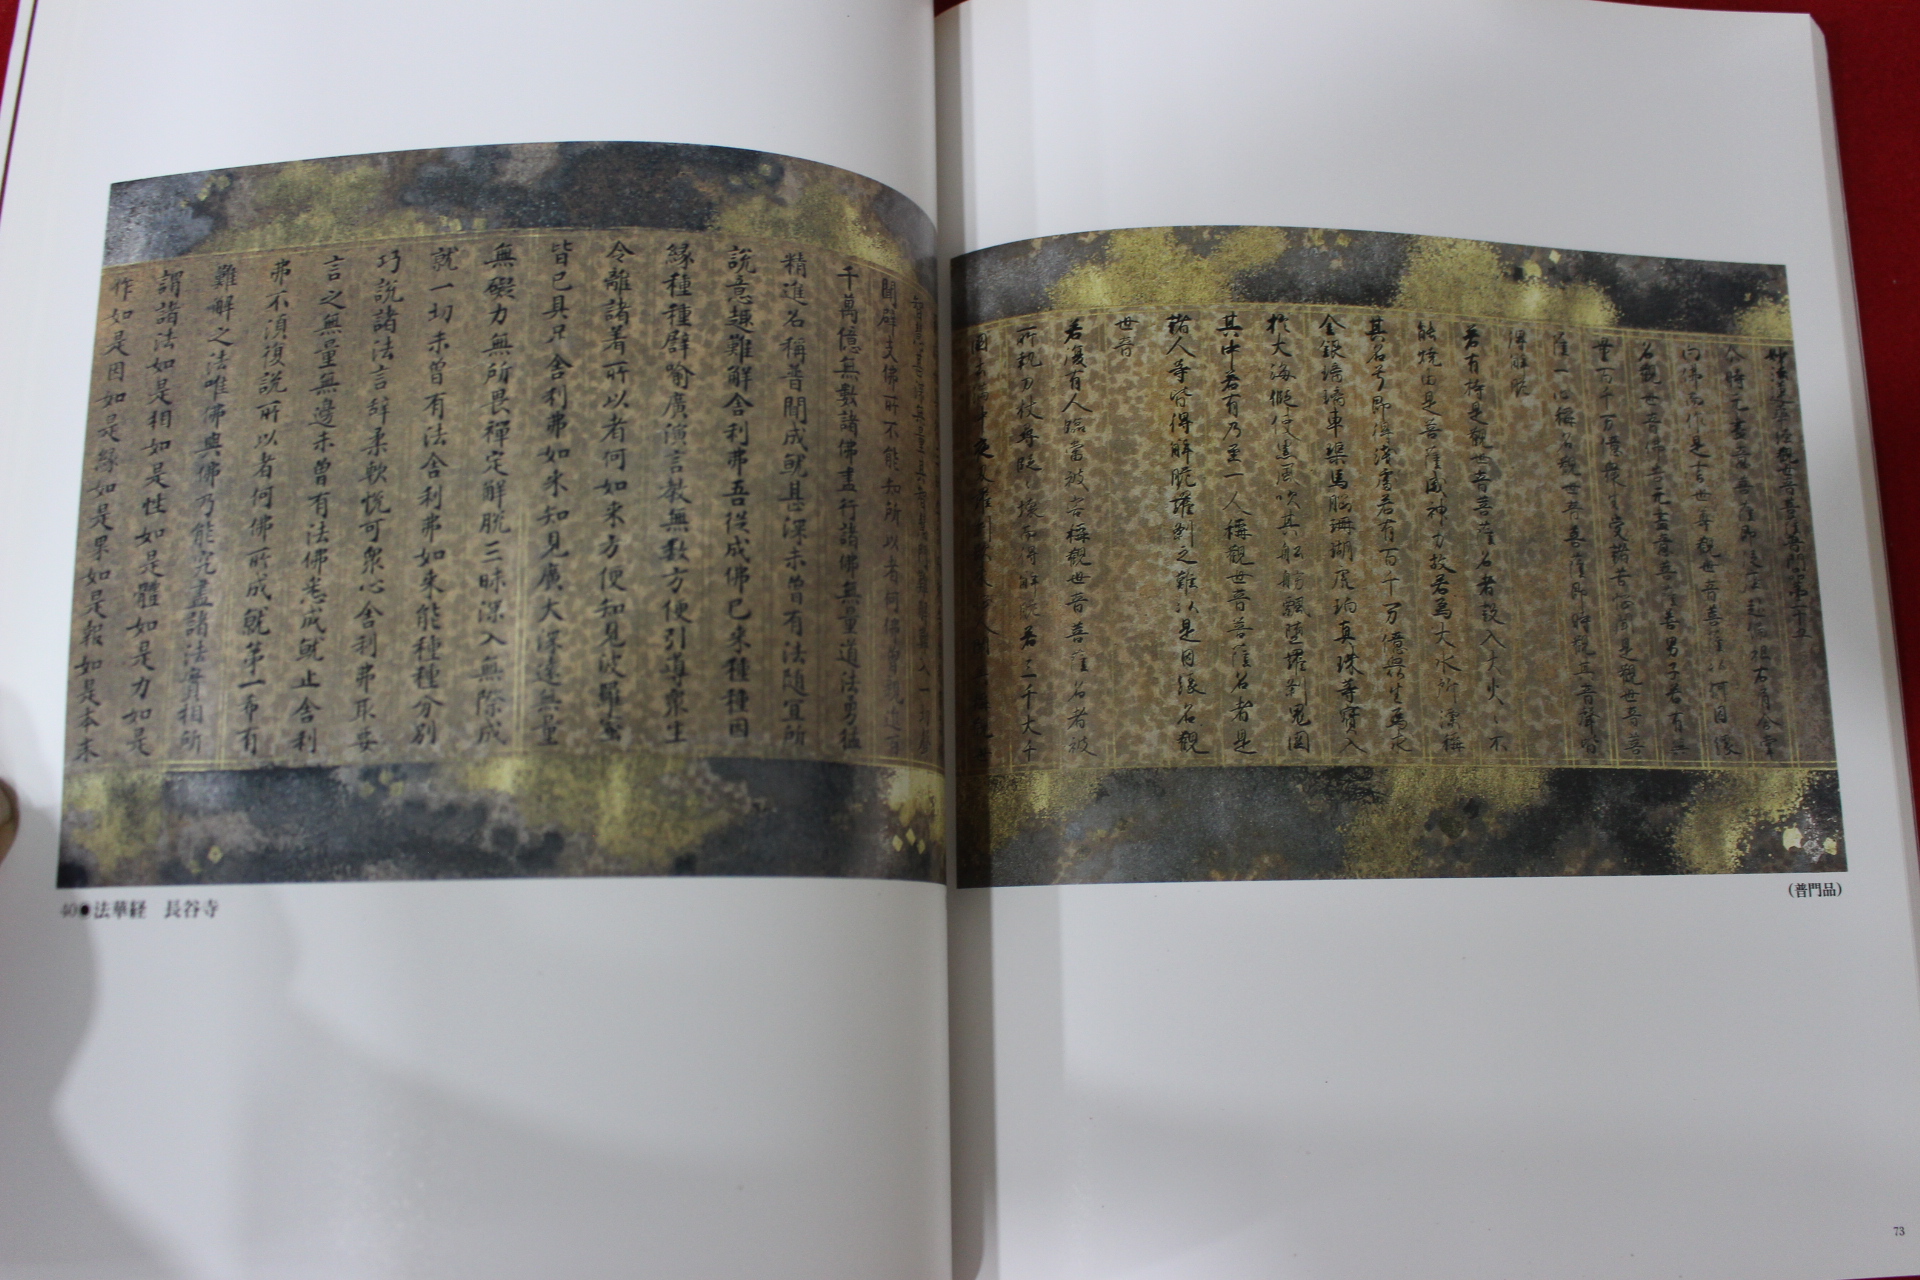 智慧甚深無量其智慧門難解難入一切聲
聞辟支佛所不能知所以者何佛曾親近百
千萬億無數諸佛盡行諸佛無量道法勇猛
精進名稱普聞成就甚深未曾有法隨宜所
說意趣難解舍利弗吾從成佛已來種種因
緣種種譬喻廣演言教無數方便引導衆生
令離諸著所以者何如来方便知見波羅蜜
皆已具足舍利弗如来知見廣大深遠無量
無礙力無所畏禪定解脫三昧深入無際成
就一切未曾有法舍利弗如来能種種分別
巧說諸法言辞柔軟悅可衆心舍利弗取要
言之無量無邊未曾有法佛悉成就止舍利
弗不須復說所以者何佛所成就第一希有
難解之法唯佛與佛乃能究盡諸法實相所
謂諸法如是相如是性如是體如是力如是
作如是因如是縁如是果如是報如是本末
40●法華経　長谷寺
妙法蓮華經觀世音菩薩普門品第二十五
尒時无盡意菩薩即從座起偏袒右肩合掌
向佛而作是言世尊觀世音菩薩以何因緣
名觀世音佛告无盡意菩薩善男子若有無
量百千万億衆生受諸苦惱聞是觀世音菩
薩一心稱名觀世音菩薩即時觀其音聲皆
得解脫
若有持是觀世音菩薩名者設入大火〻不
能燒由是菩薩威神力故若爲大水所漂稱
其名号即得淺處若有百千万億衆生爲求
金銀瑠璃車渠馬腦珊瑚虎珀真珠等寶入
於大海假使黑風吹其舩舫飄墮羅刹鬼國
其中若有乃至一人稱觀世音菩薩名者是
諸人等皆得解脫羅刹之難以是因緣名觀
世音
若復有人臨當被害稱觀世音菩薩名者彼
所執刀杖尋段〻壞而得解脫若三千大千
國土滿中夜叉羅刹欲来惱人聞其稱觀世
(普門品)
73